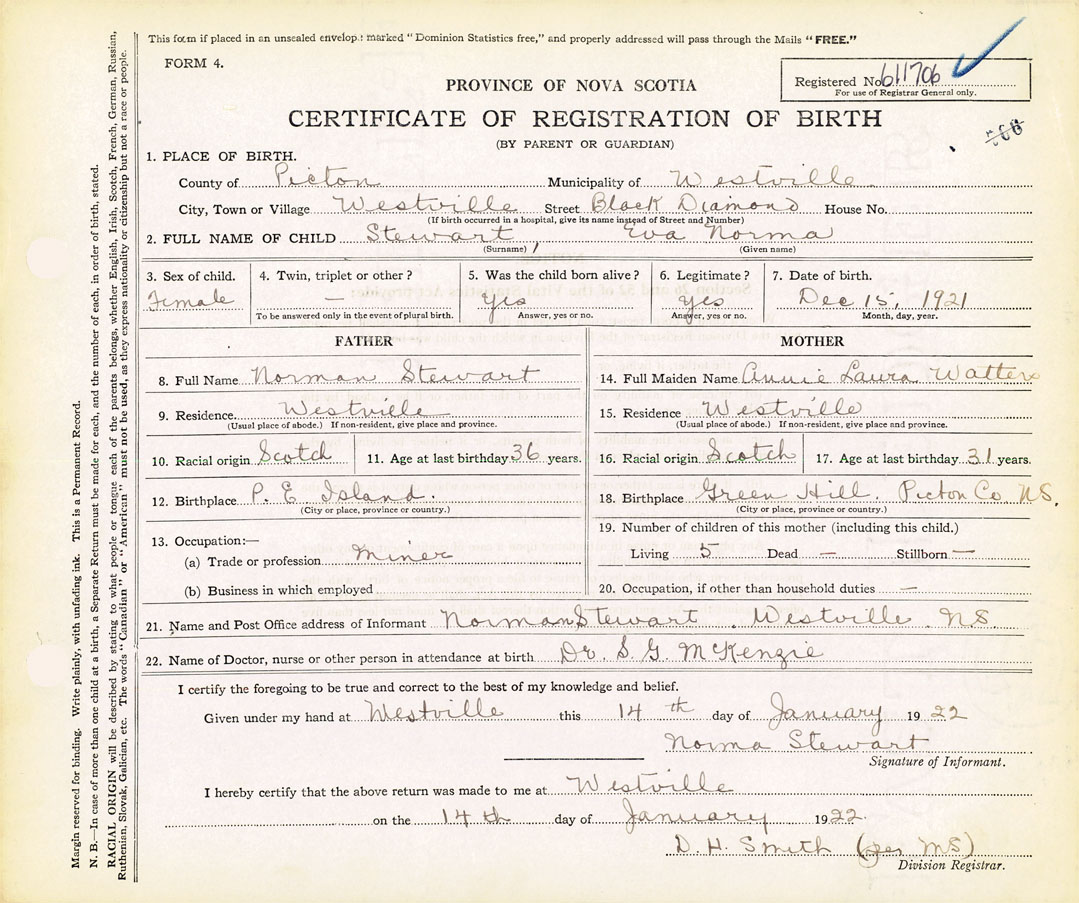 This form if placed in an unsealed envelope marked "Dominion Statistics free," and properly addressed will pass through the Mails "FREE."
FORM 4.
Registered No. 611706
For use of Registrar General only.
PROVINCE OF NOVA SCOTIA
CERTIFICATE OF REGISTRATION OF BIRTH
(BY PARENT OR GUARDIAN)
1. PLACE OF BIRTH.
County of Picton Municipality of Westville
City, Town or Village Westville Street Black Diamond House No.
(If birth occurred in a hospital, give its name instead of Street and Number)
2. FULL NAME OF CHILD Stewart Eva Norma
(Surname) (Given name)
3. Sex of child. 4. Twin, triplet or other? 5. Was the child born alive? 6. Legitimate? 7. Date of birth.
Female — Yes Yes Dec 15, 1921
To be answered only in the event of plural birth. Answer, yes or no. Answer, yes or no. Month, day, year.
FATHER
8. Full Name Norman Stewart
9. Residence. Westville
(Usual place of abode.) If non-resident, give place and province.
10. Racial origin Scotch 11. Age at last birthday 36 years.
12. Birthplace P. E Island.
(City or place, province or country.)
13. Occupation:—
(a) Trade or profession Miner
(b) Business in which employed
MOTHER
14. Full Maiden Name Annie Laura Watters
15. Residence Westville
(Usual place of abode.) If non-resident, give place and province.
16. Racial origin Scotch 17. Age at last birthday 31 years.
18. Birthplace Green Hill. Picton Co NS.
(City or place, province or country.)
19. Number of children of this mother (including this child.)
Living 5 Dead — Stillborn —
20. Occupation, if other than household duties —
21. Name and Post Office address of Informant Norman Stewart. Westville. N.S.
22. Name of Doctor, nurse or other person in attendance at birth Dr. S. G. McKenzie
I certify the foregoing to be true and correct to the best of my knowledge and belief.
Given under my hand at Westville this 14th day of January 1922
Norma Stewart
Signature of Informant.
I hereby certify that the above return was made to me at Westville
on the 14th day of January 1922.
D. H. Smith (per MS)
Division Registrar.
Margin reserved for binding. Write plainly, with unfading ink. This is a Permanent Record.
N. B.—In case of more than one child at a birth, a Separate Return must be made for each, and the number of each, in order of birth, stated.
RACIAL ORIGIN will be described by stating to what people or tongue each of the parents belongs, whether English, Irish, Scotch, French, German, Russian,
Ruthenian, Slovak, Galician, etc. The words "Canadian" or "American" must not be used, as they express nationality or citizenship but not a race or people.